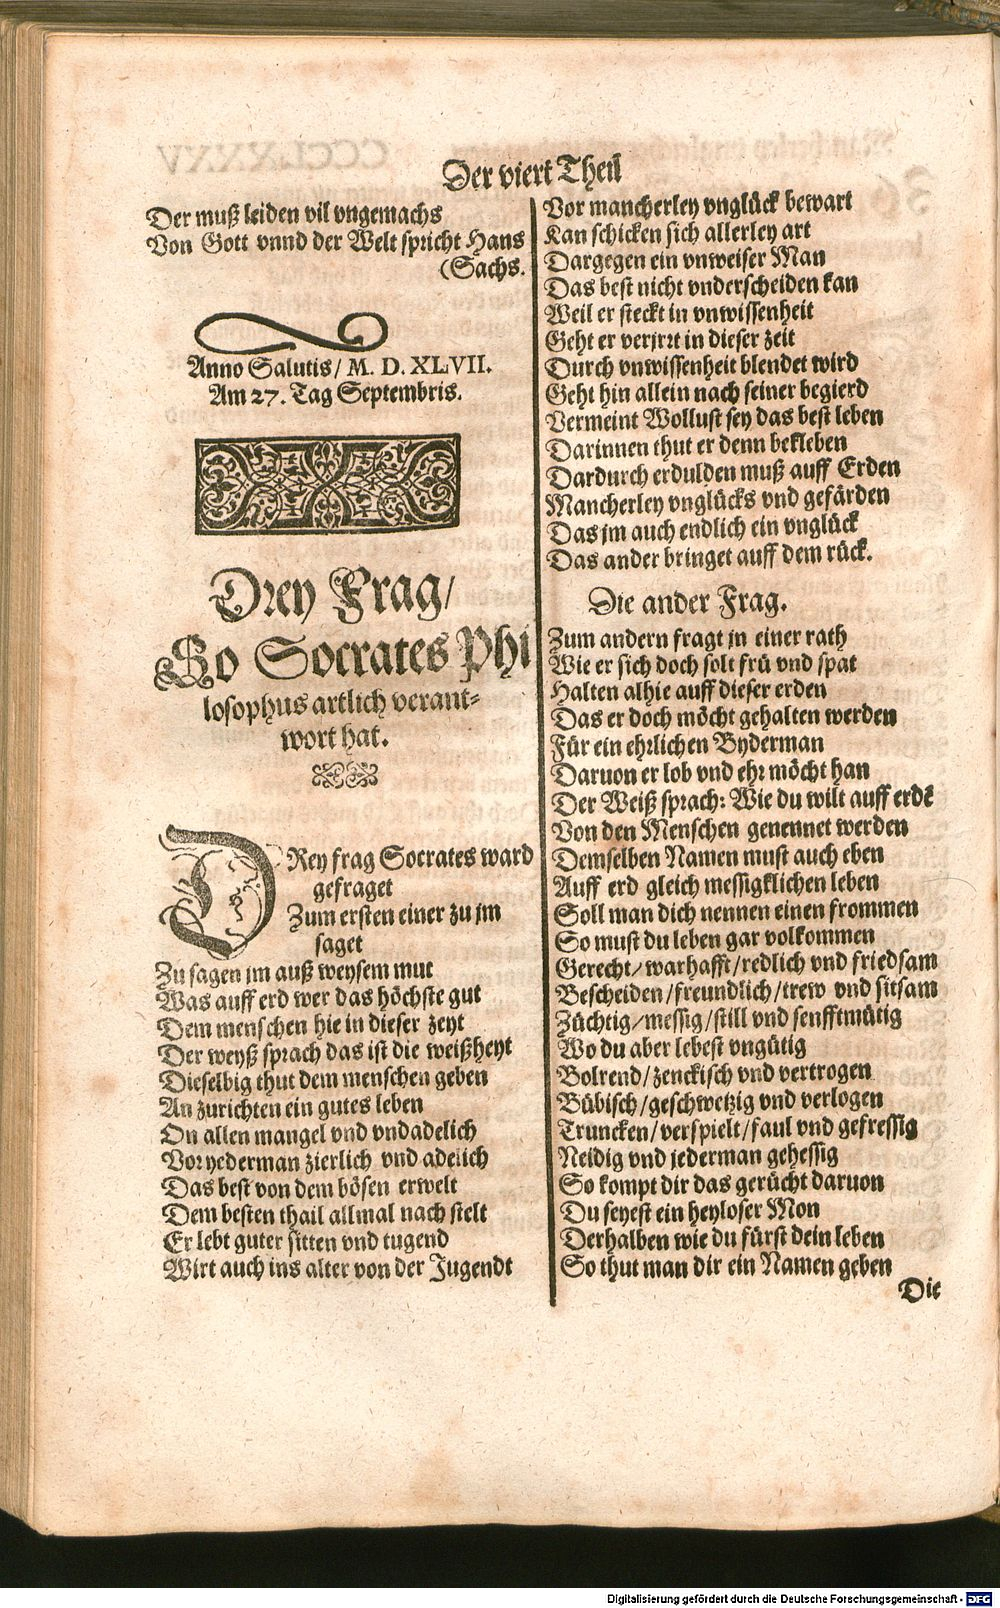 Der viert Theil
Der muß leiden vil vngemachs
Von Gott vnnd der Welt spricht Hans
(Sachs.
Anno Salutis/ M. D. XLVII.
Am 27. Tag Septembris.
Drey Frag/
So Socrates Phi
losophus artlich verant=
wort hat.
DRey frag Socrates ward
gefraget
Zum ersten einer zu jm
saget
Zu sagen jm auß weysem mut
Was auff erd wer das höchste gut
Dem menschen hie in dieser zeyt
Der weyß sprach das ist die weißheyt
Dieselbig thut dem menschen geben
An zurichten ein gutes leben
On allen mangel vnd vndadelich
Vor yederman zierlich vnd adelich
Das best von dem bösen erwelt
Dem besten thail allmal nach stelt
Er lebt guter sitten vnd tugend
Wirt auch ins alter von der Jugendt
Vor mancherley vnglück bewart
Kan schicken sich allerley art
Dargegen ein vnweiser Man
Das best nicht vnderscheiden kan
Weil er steckt in vnwissenheit
Geht er verjrrt in dieser zeit
Durch vnwissenheit blendet wird
Geht hin allein nach seiner begierd
Vermeint Wollust sey das best leben
Darinnen thut er denn bekleben
Dardurch erdulden muß auff Erden
Mancherley vnglücks vnd gefärden
Das jm auch endlich ein vnglück
Das ander bringet auff dem rück.
Die ander Frag.
Zum andern fragt jn einer rath
Wie er sich doch solt frü vnd spat
Halten alhie auff dieser erden
Das er doch möcht gehalten werden
Für ein ehrlichen Byderman
Daruon er lob vnd ehr möcht han
Der Weiß sprach: Wie du wilt auff erdẽ
Von den Menschen genennet werden
Demselben Namen must auch eben
Auff erd gleich messigklichen leben
Soll man dich nennen einen frommen
So must du leben gar volkommen
Gerecht/warhafft/redlich vnd friedsam
Bescheiden/freundlich/trew vnd sitsam
Züchtig/messig/still vnd senfftmütig
Wo du aber lebest vngütig
Bolrend/zenckisch vnd vertrogen
Bübisch/geschwetzig vnd verlogen
Truncken/verspielt/faul vnd gefressig
Neidig vnd jederman gehessig
So kompt dir das gerücht daruon
Du seyest ein heyloser Mon
Derhalben wie du fürst dein leben
So thut man dir ein Namen geben
Die
Digitalisierung gefördert durch die Deutsche Forschungsgemeinschaft - DFG